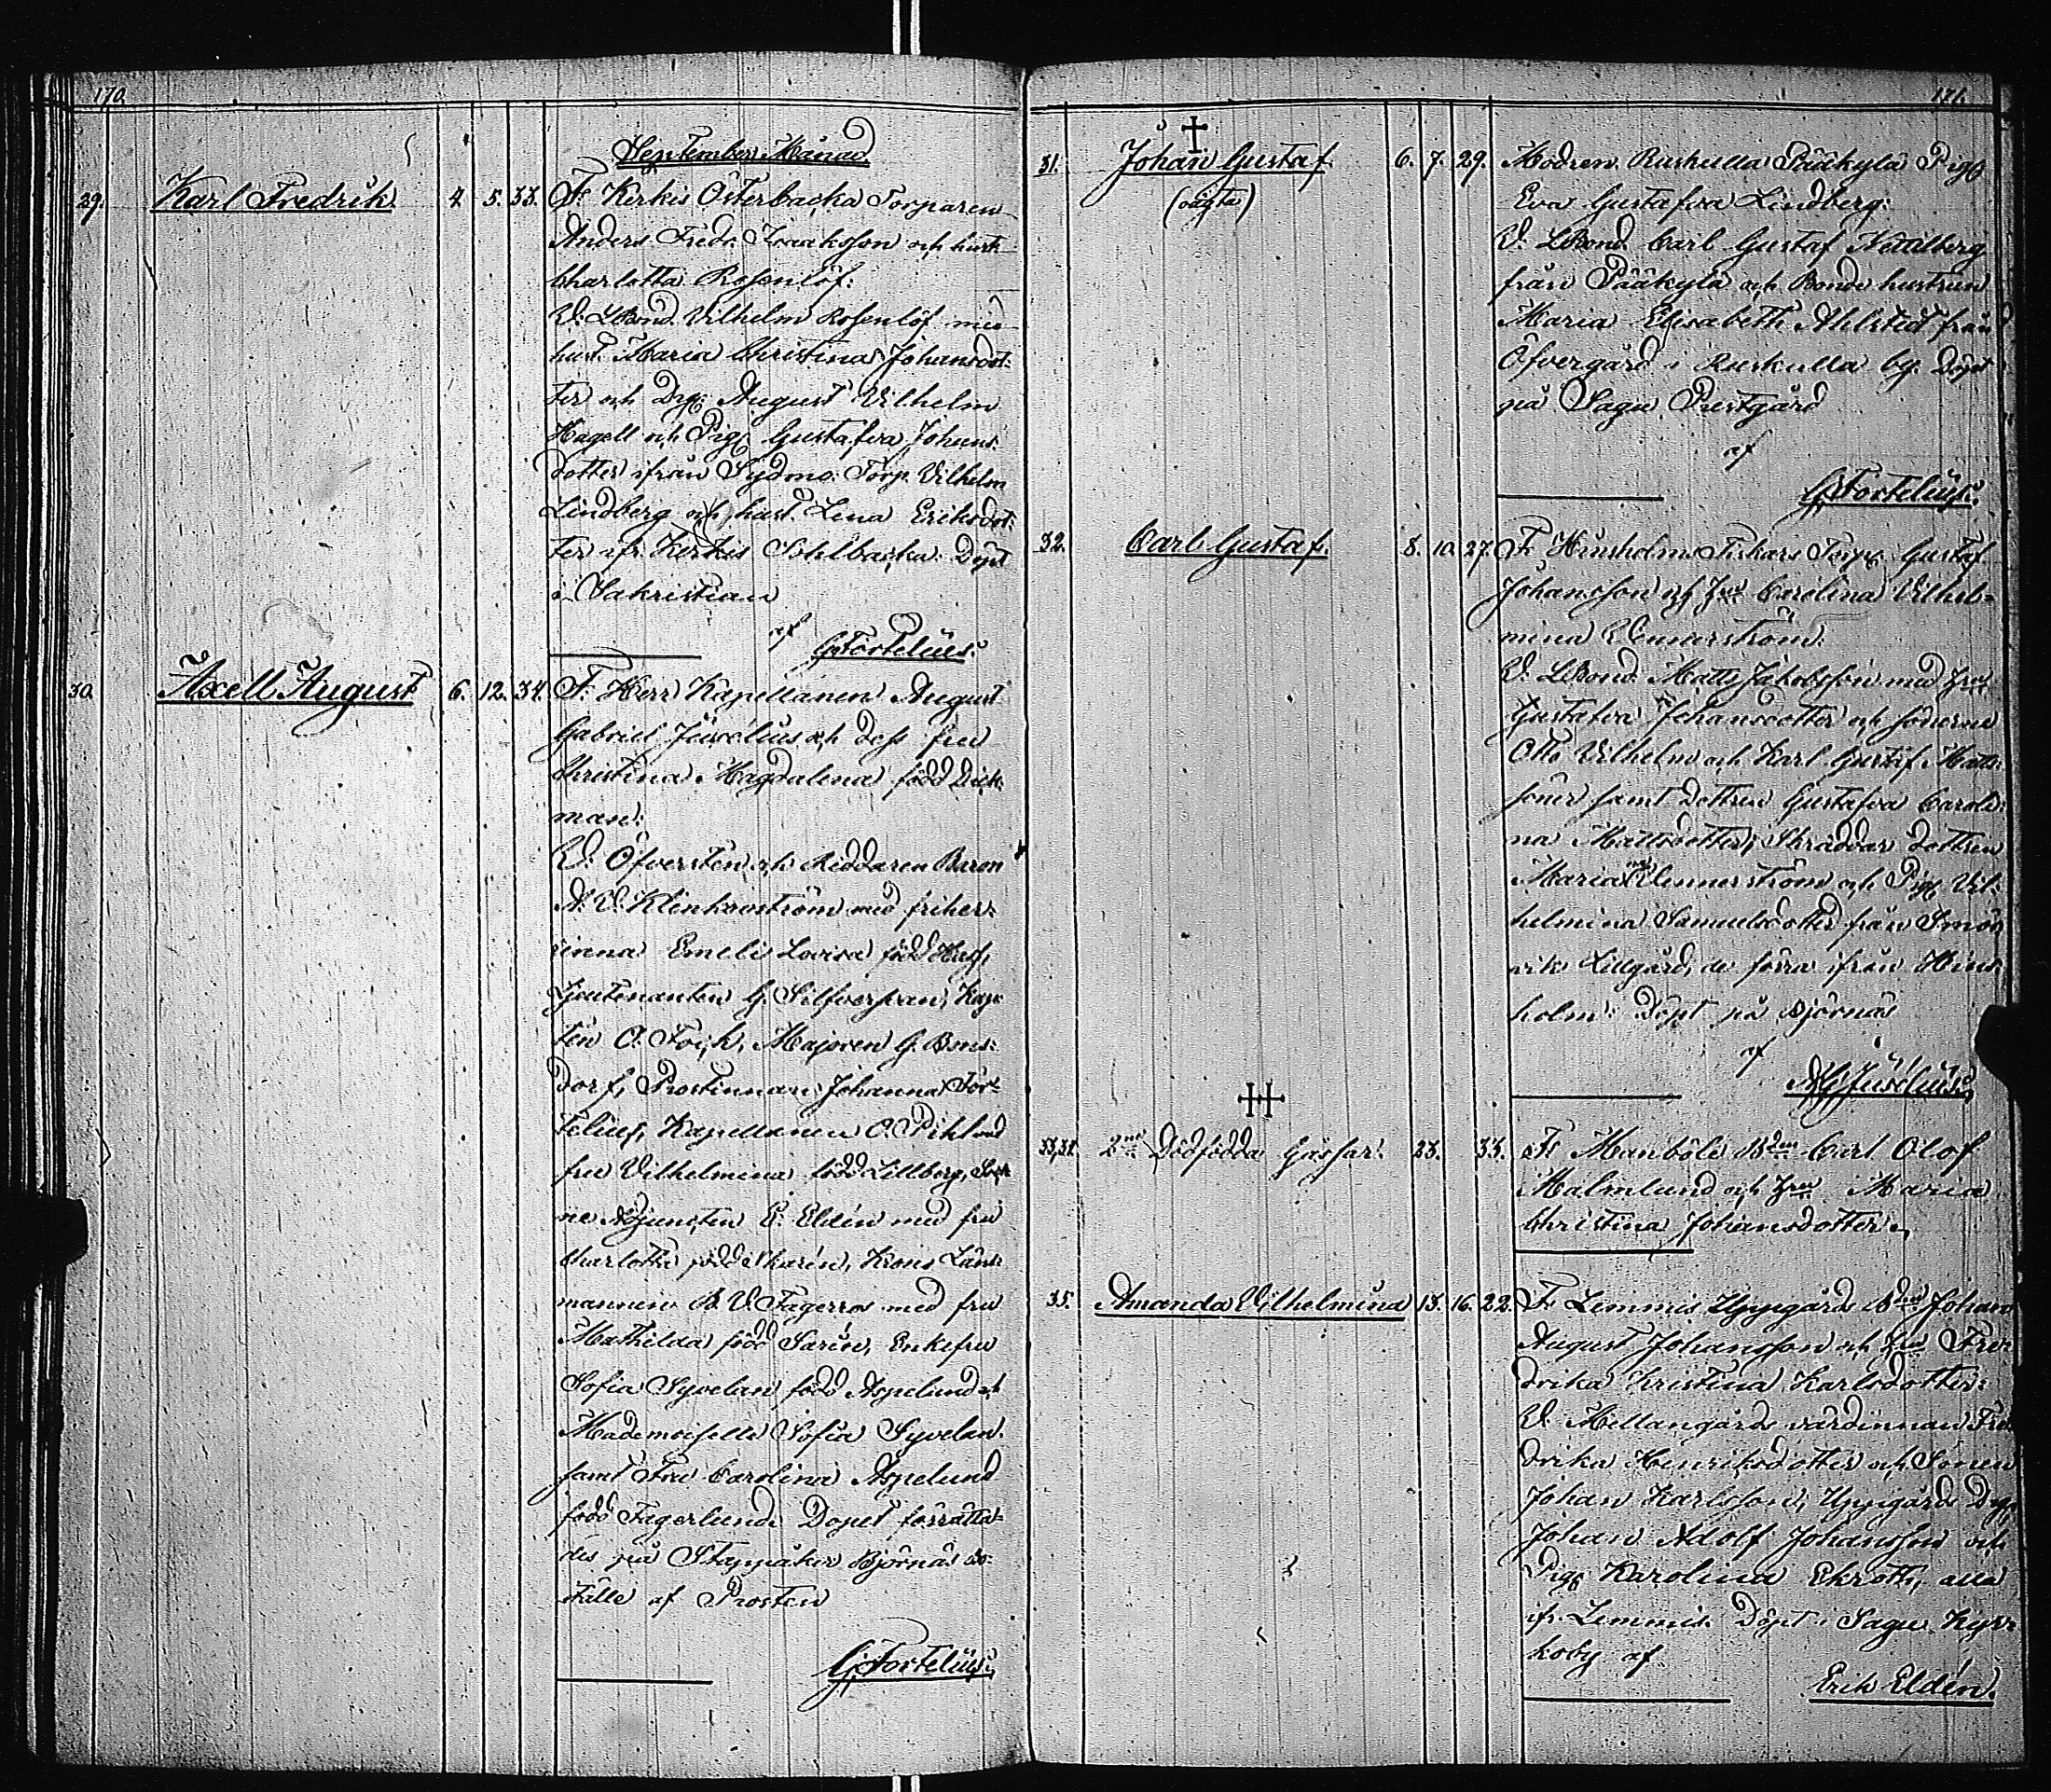 170.
September Månad.
29. Karl Fredrik 4. 5. 33. F. Kerkis Österbacka Torparen
Anders Fredr. Isaaksson och hust.
Charlotta Rosenlöf:
V. LBond. Vilhelm Rosenlöf med
hust. Maria Christina Johansdot-
ter och Drg: August Vilhelm
Hagell och Pig. Gustafva Johans-
dotter ifrån Sydmo: Torp. Vilhelm
Lindberg och hust. Lena Eriksdot-
ter ifr. Kerkis Sohlbacka. Döpt
i Sakristian
af
G Fortelius.
30. Axell August 6. 12. 34. F. Herr Kapellanen August
Gabriel Juselius och dess fru
Christina Magdalena född Dick-
man:
V. Öfversten och Riddaren Baron
A. V. Klinkovström med friher-
inna Emeli Lovisa född
Lieutenanten G. Silfversvan, Kap-
ten O. Fock, Majoren G. Bons-
dorf, Prostinnan Johanna For-
telius, Kapellanen O. Pihl med
fru Vilhelmina född Lillberg, Sock-
ne Adjuncten E. Eldén med fru
Charlotta född Skarin, Krono Läns-
mannen B. V. Fagerros med fru
Mathilda född Sarin, Enkefru
Sofia Syvelan född Aspelund och
Mademoiselle Sofia Syvelan.
samt Fru Carolina Aspelund
född Fagerlund. Dopet förrätta-
des på Stappåker Björnäs bo-
ställe af Prosten
G. Fortelius.
171.
31. Johan Gustaf. 6. 7. 29. Modren Ruskulla Pääkylä Pig.
(oägta) Eva Gustafva Lindberg:
V. LBond. Carl Gustaf
från Pääkylä och Bonde hustrun
Maria Elisabeth Ahlstedt från
Öfvergård i Ruskulla by. Döpt
på Sagu Prestgård
af
G Fortelius.
32. Carl Gustaf. 8. 10. 27. F. Hinsholm Fiskars Torp. Gustaf
Johansson och Hru Carolina Vilhel-
mina Vennerström.
V. LBond. Matts Jakobsson med Hru
Gustafva Johansdotter och sönerne
Otto Vilhelm och Karl Gustaf Matts-
söner samt dottren Gustafva Caroli-
na Mattsdotter, Skräddar dottren
Maria Vennerström och Pig. Vil-
helmina Samuelsdotter från Smör-
vik Lillgård, de förra ifrån Hins-
holm: Döpt på Björnäs
af
AG Juselius.
33,34. 2ne Dödfödda Gossar. 23. 33. F. Manböle Bdn Carl Olof
Malmlund och Hru Maria
Christina Johansdotter.
35. Amanda Vilhelmina 13. 16. 22. F. Lemmis Uppgårds Bdn Johan
August Johansson och Hru Fre-
drika Kristina Karlsdotter:
V. Mellangårds värdinnan Fre-
drika Henriksdotter och Sonen
Johan Karlsson, Uppgårds Drg.
Johan Adolf Johansson och
Pig. Karolina Ekroth, alla
ifr. Lemmis. Döpt i Sagu Kyr-
koby af
Erik Eldén.